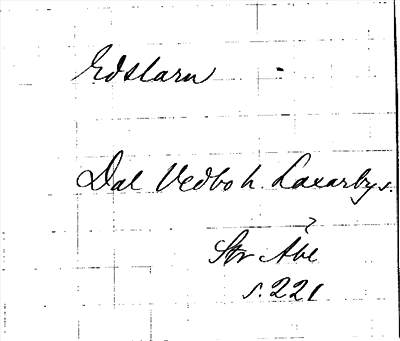 Edslarn -
Dal Vedbo h. Laxarby s.
?
Str Åbl
s. 221